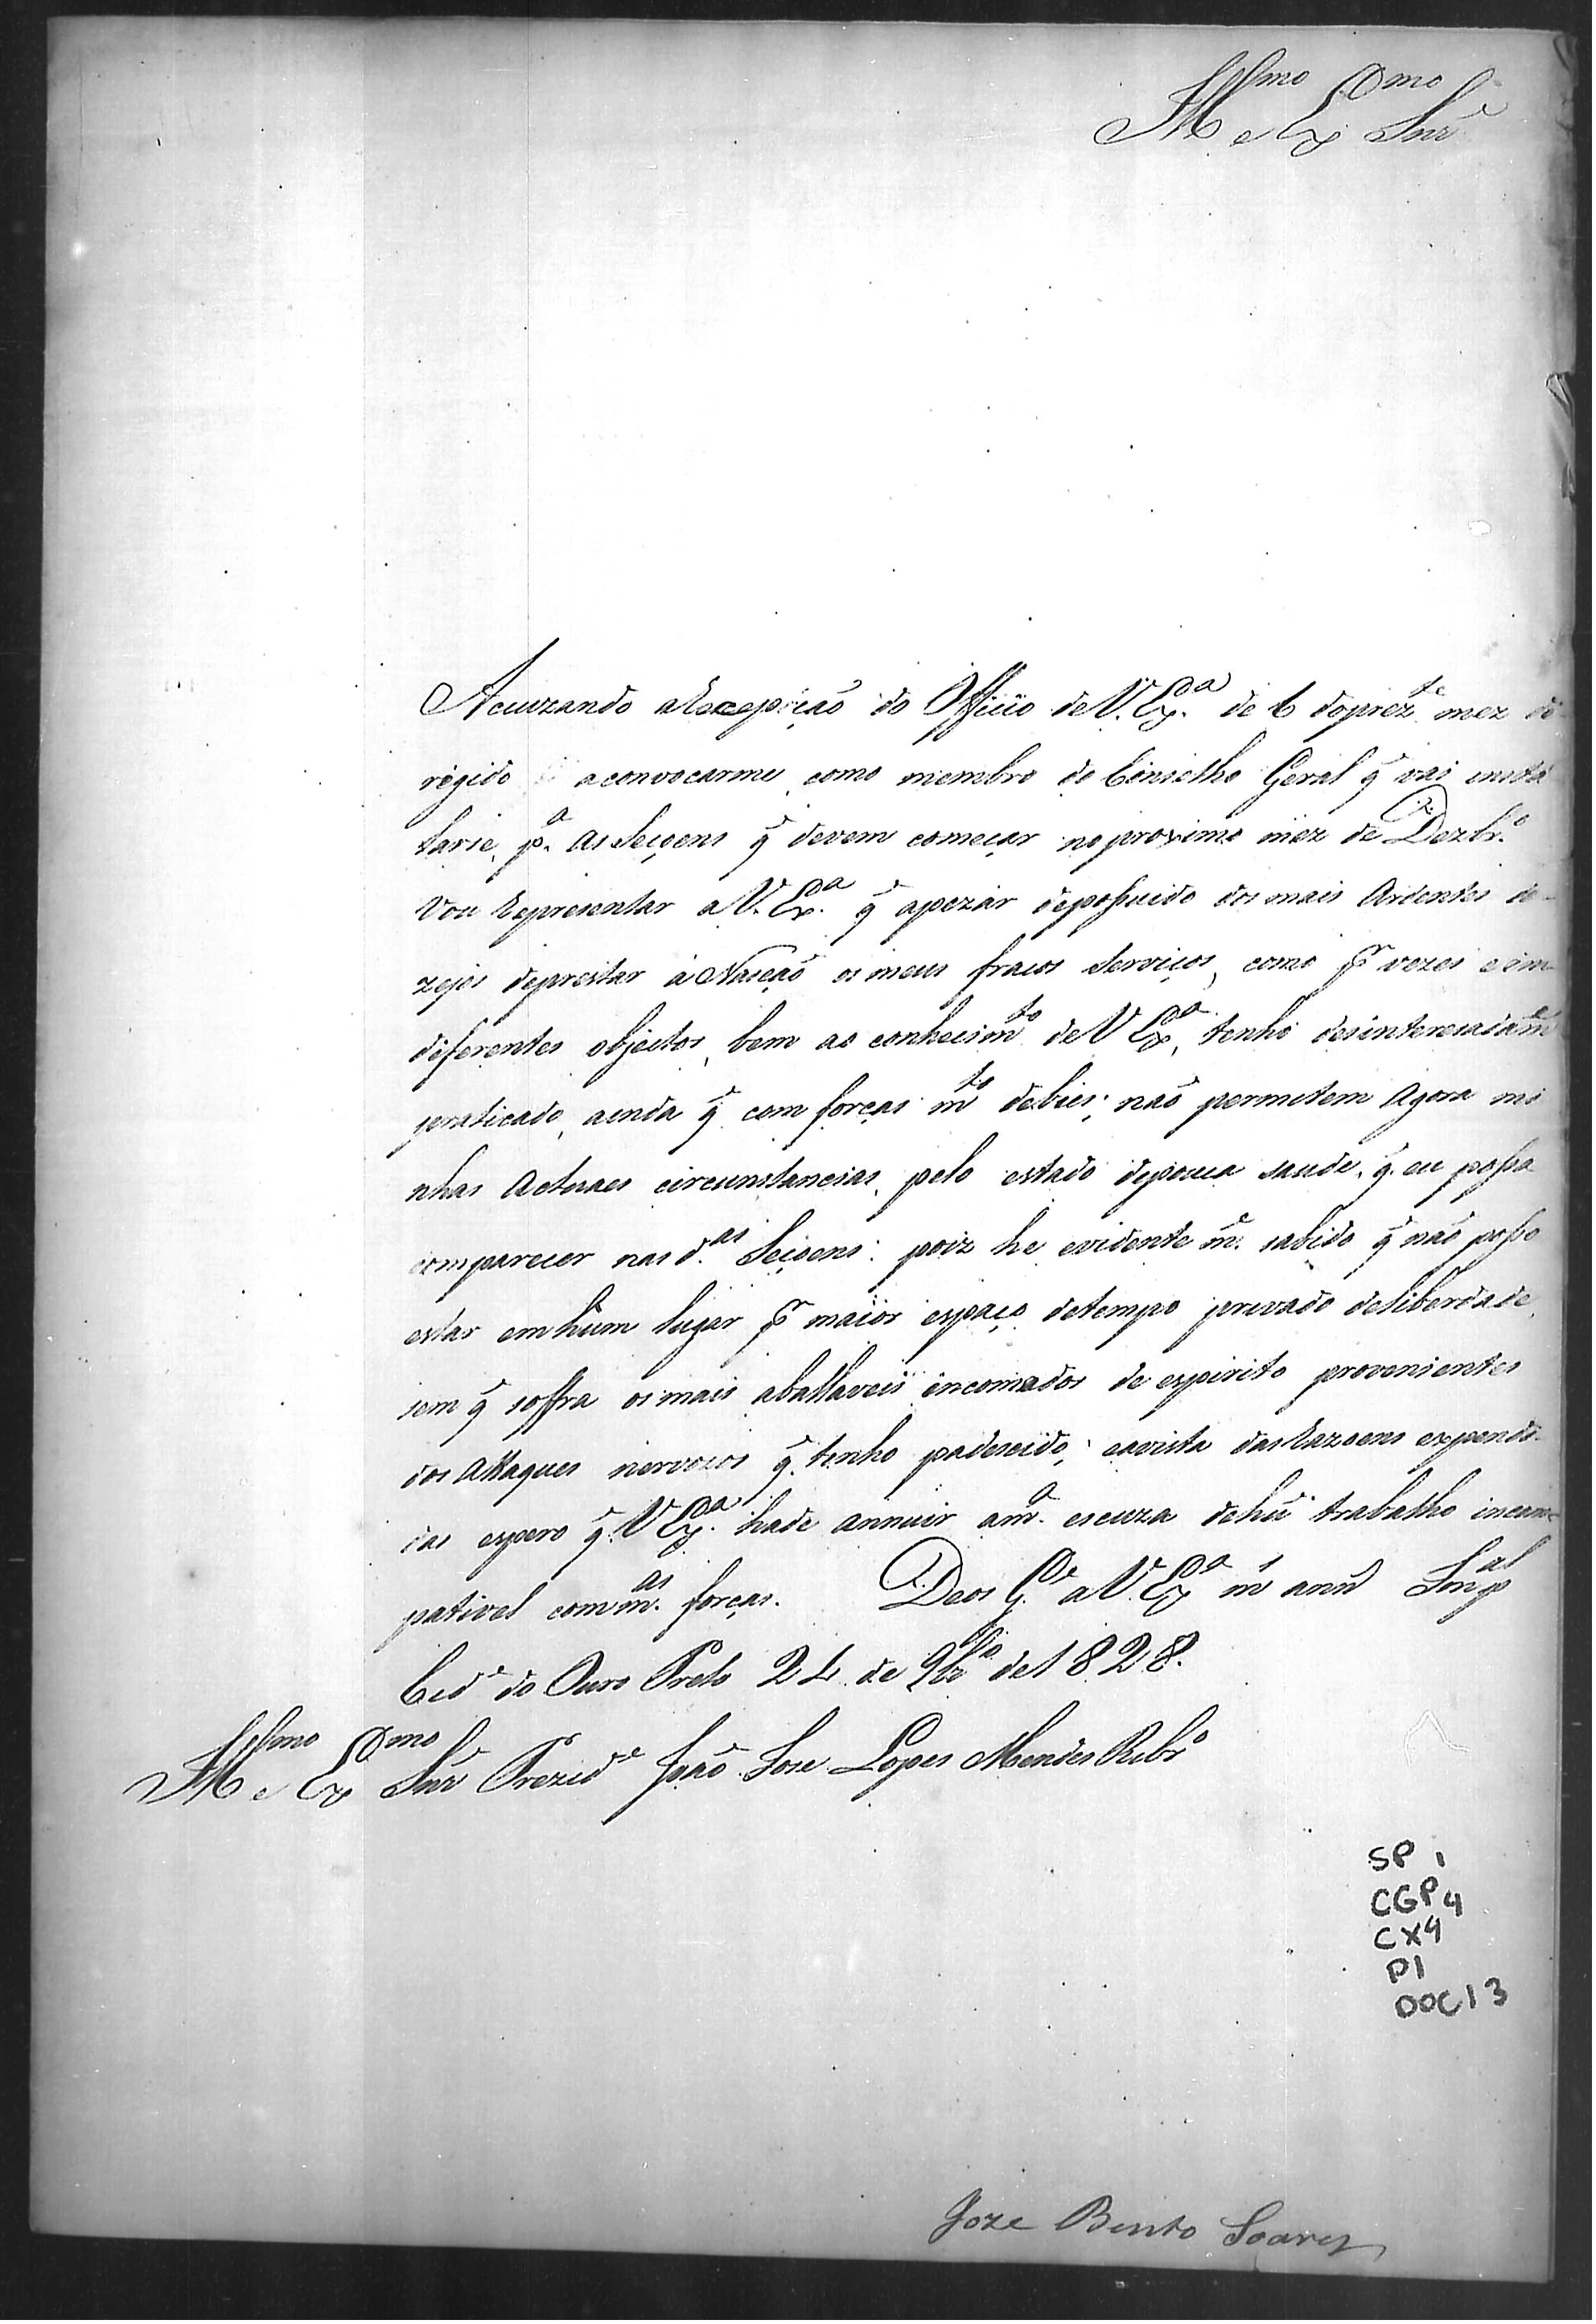 Ill.mo e Ex.mo Snr.
Acuzando aRecepição do Officio de V. Ex.a de 6 doprez.te mez di
rigido aconvocarme como membro do Conselho Geral q̃ vai insta
larse, p.a as Seçoens q̃ devem começar no proximo mez de Dezbr.o
Vou Representar a V. Ex.a q̃ apezar depossuido dos mais Ardentes de-
zejos deprestar á Nasção os meus fracos serviços, como p.r vezes e em
diferentes objectos, bem ao conhecim.to de V Ex.a, tenho desinteressadam.e
praticado, aenda q̃ com forças m.to debies; não permetem Agora mi
nhas Actuaes circunstancias, pelo estado depouca saude, q̃ eu possa
comparecer nas d.as Seçoens: poiz he evidente m.e sabido q̃ não posso
estar em hum lugar p.r maior espaço detempo privado deliberdade,
sem q̃ soffra os mais aballaveis incomados de espirito provenientes
dos Attaques nervozos q̃ tenho padescido; eavista dasRazoens expendi-
das espero q̃ V Ex.a hade annuir am.a escuza dehũ trabalho incom-
pativel comm.as forças. Deos G.de a V. Ex.a m.s ann.s Imp.al
Cid.e do Ouro Preto 24 de 9br.o de1828.
Ill.mo e Ex.mo Snr. Prezid.e João Jose Lopes Mendes Ribr.o
SP 1
CGP4
CX4
P1
DOC13
Joze Bento Soares